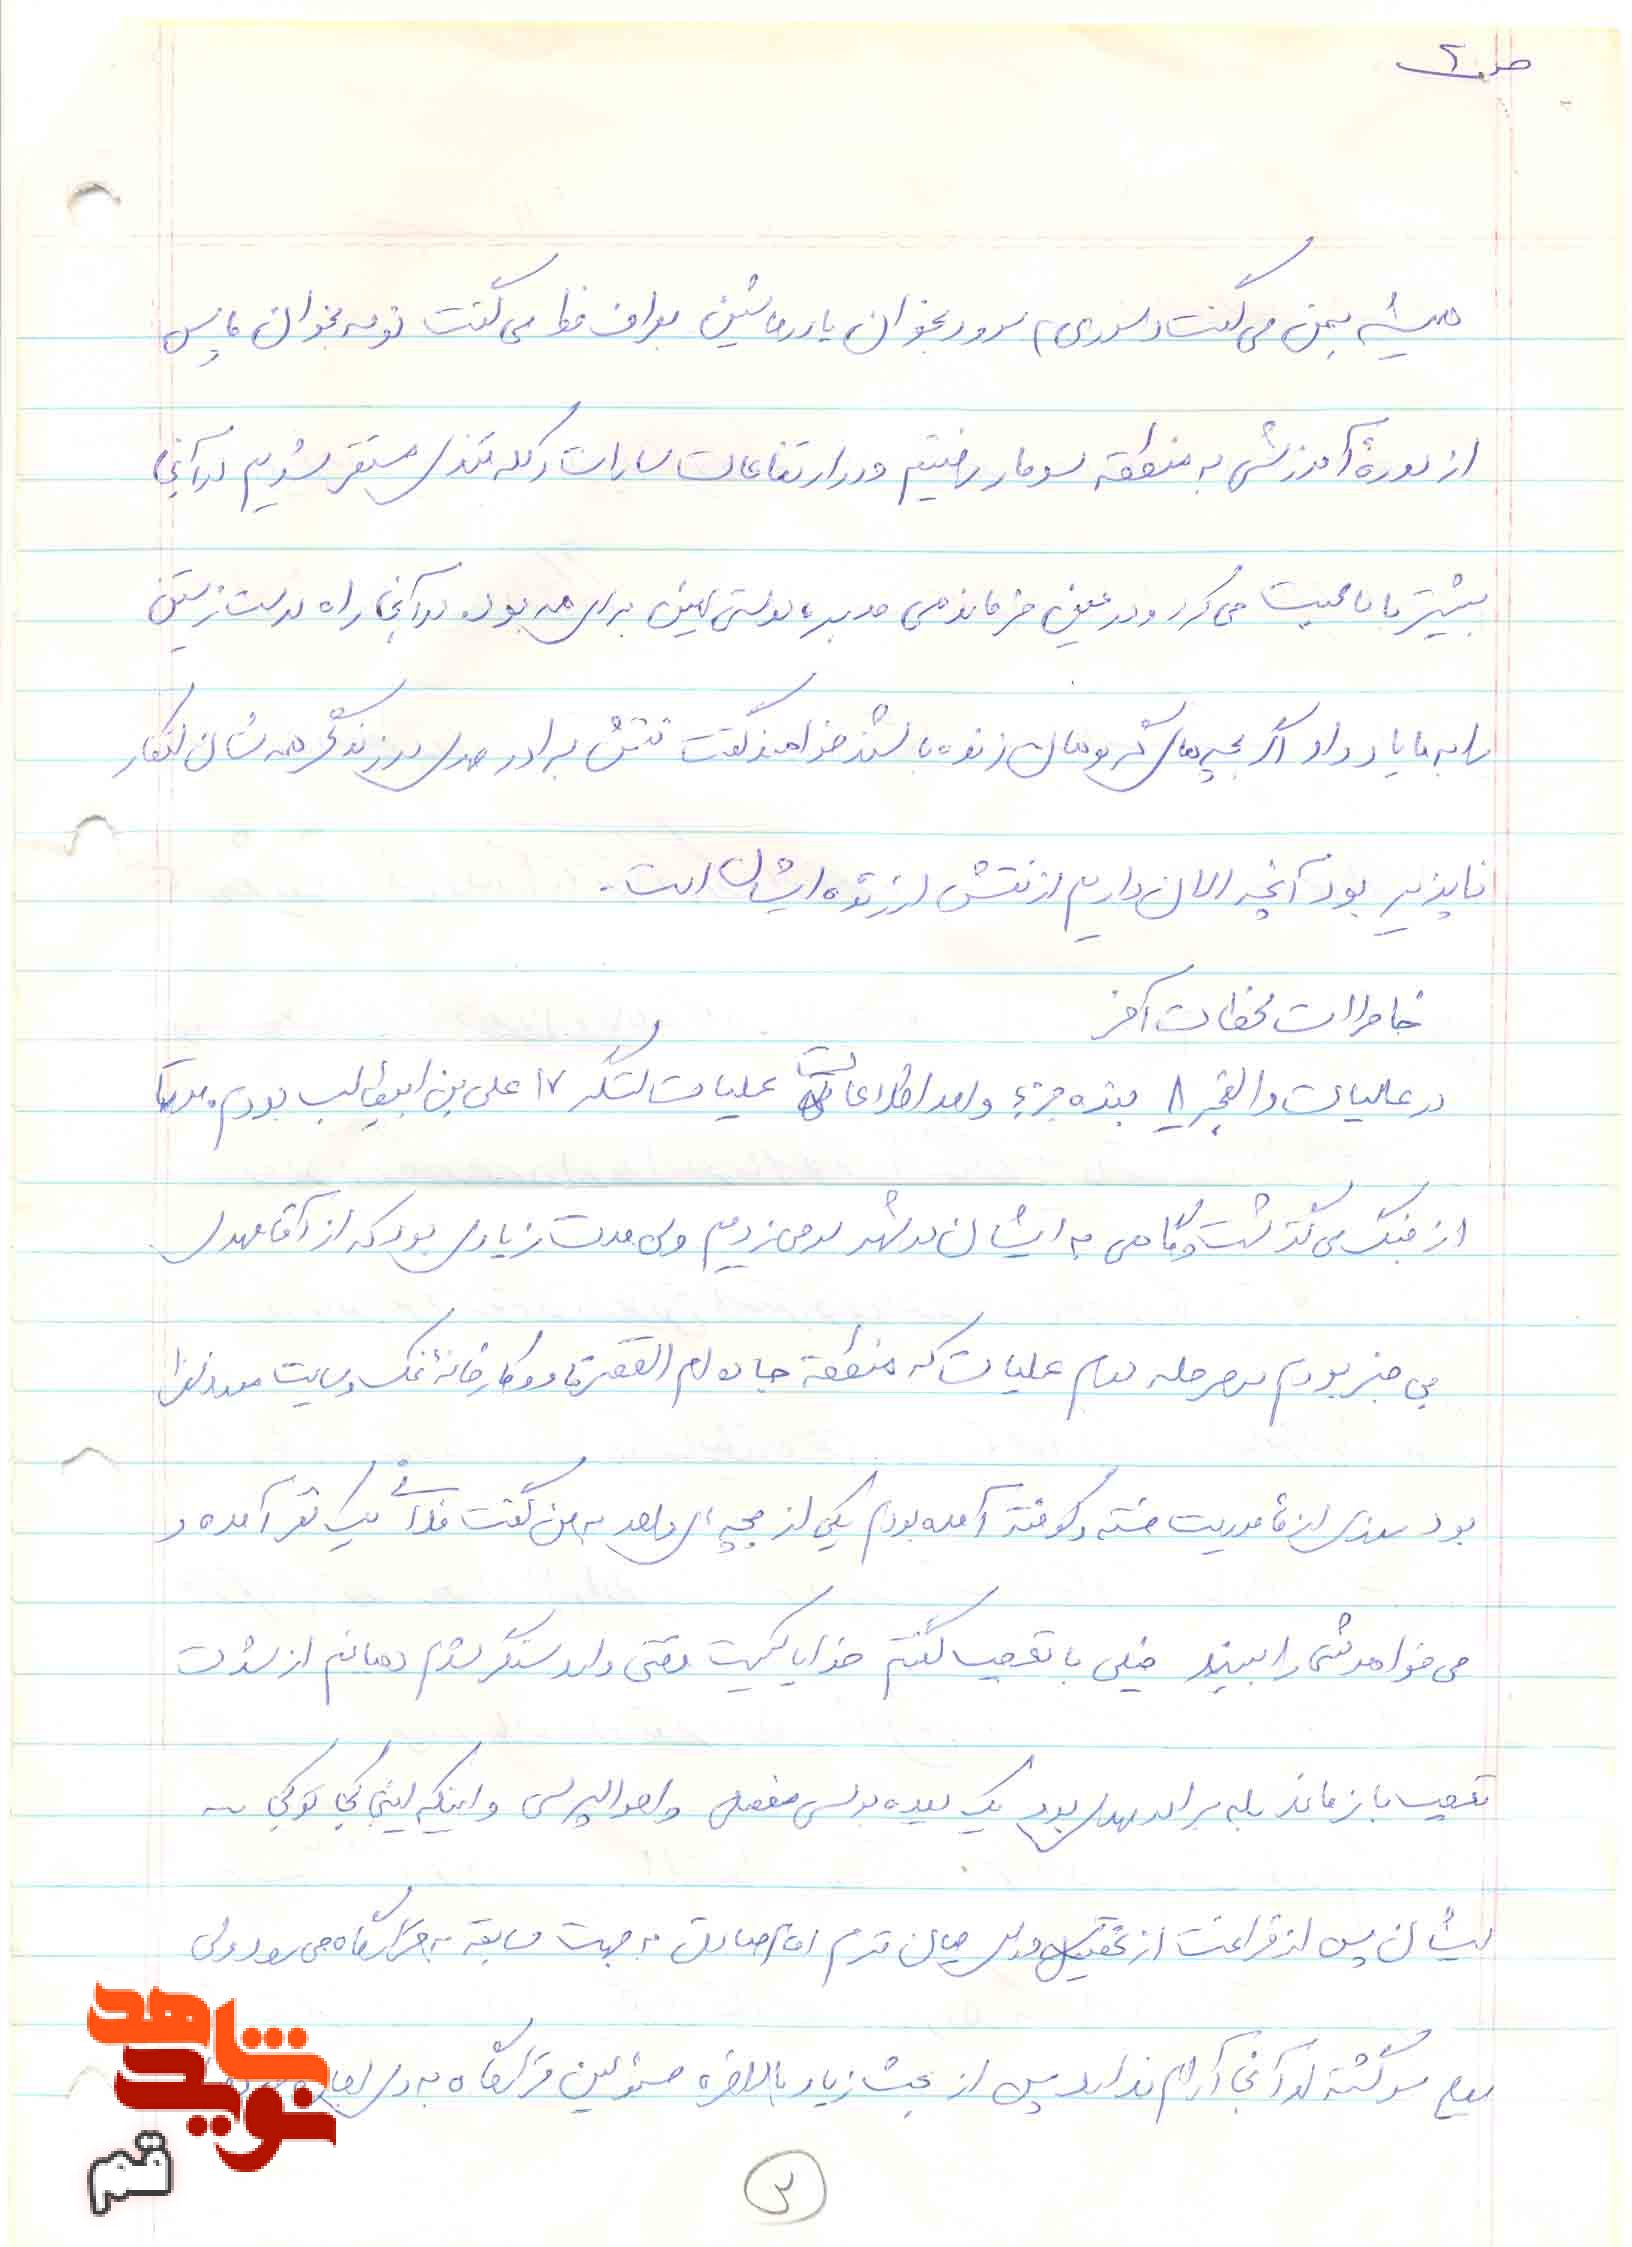 همیشه بمن می گفت سرود بخوان یا در ماشین می گفت نوحه بخوان پس
از دورهٔ آموزشی به منطقه سومار رفتیم و در ارتفاعات سارات و کله قندی مستقر شدیم در آنجا
بیشتر با ما محبت می کرد و در عین فرماندهی مدبر، دوستی امین برای همه بود. در آنجا راه درست زیستن
را به ما یاد داد اگر بچه های گردومان زنده باشند خواهند گفت نقش برادر مهدی در زندگی همه شان انکار
ناپذیر بود آنچه الان داریم از نقش ارزنده ایشان است.
خاطرات لحظات آخر
در عملیات والفجر ۸ بنده جزء واحد اطلاعات عملیات لشکر ۱۷ علی بن ابیطالب بودم. مدتها
از جنگ می گذشت و گاهی به ایشان در شهر سر می زدیم ولی مدت زیادی بود که از آقا مهدی
بی خبر بودم مرحله دوم عملیات که منطقه جاده ام القصر و کارخانه نمک و سایت مورد نظر
بود روزی از مأموریت خسته و کوفته آمده بودم یکی از بچه های واحد به من گفت فلانی یک نفر آمده و
می خواهد شما را ببیند خیلی با تعجب گفتم خدایا کیست وقتی وارد سنگر شدم دهانم از شدت
تعجب باز ماند بله برادر مهدی بود یک دیده بوسی مفصل و احوالپرسی و اینکه اینجا کجا تو کجا
ایشان پس از فراغت از تحقیق میان ترم امام صادق به جهت سابقه به قرارگاه می رود ولی
روح سرگشته او آنجا آرام ندارد پس از بحث زیاد بالاخره مسئولین قرارگاه به وی اجازه
۳
نوید شاهد
قم